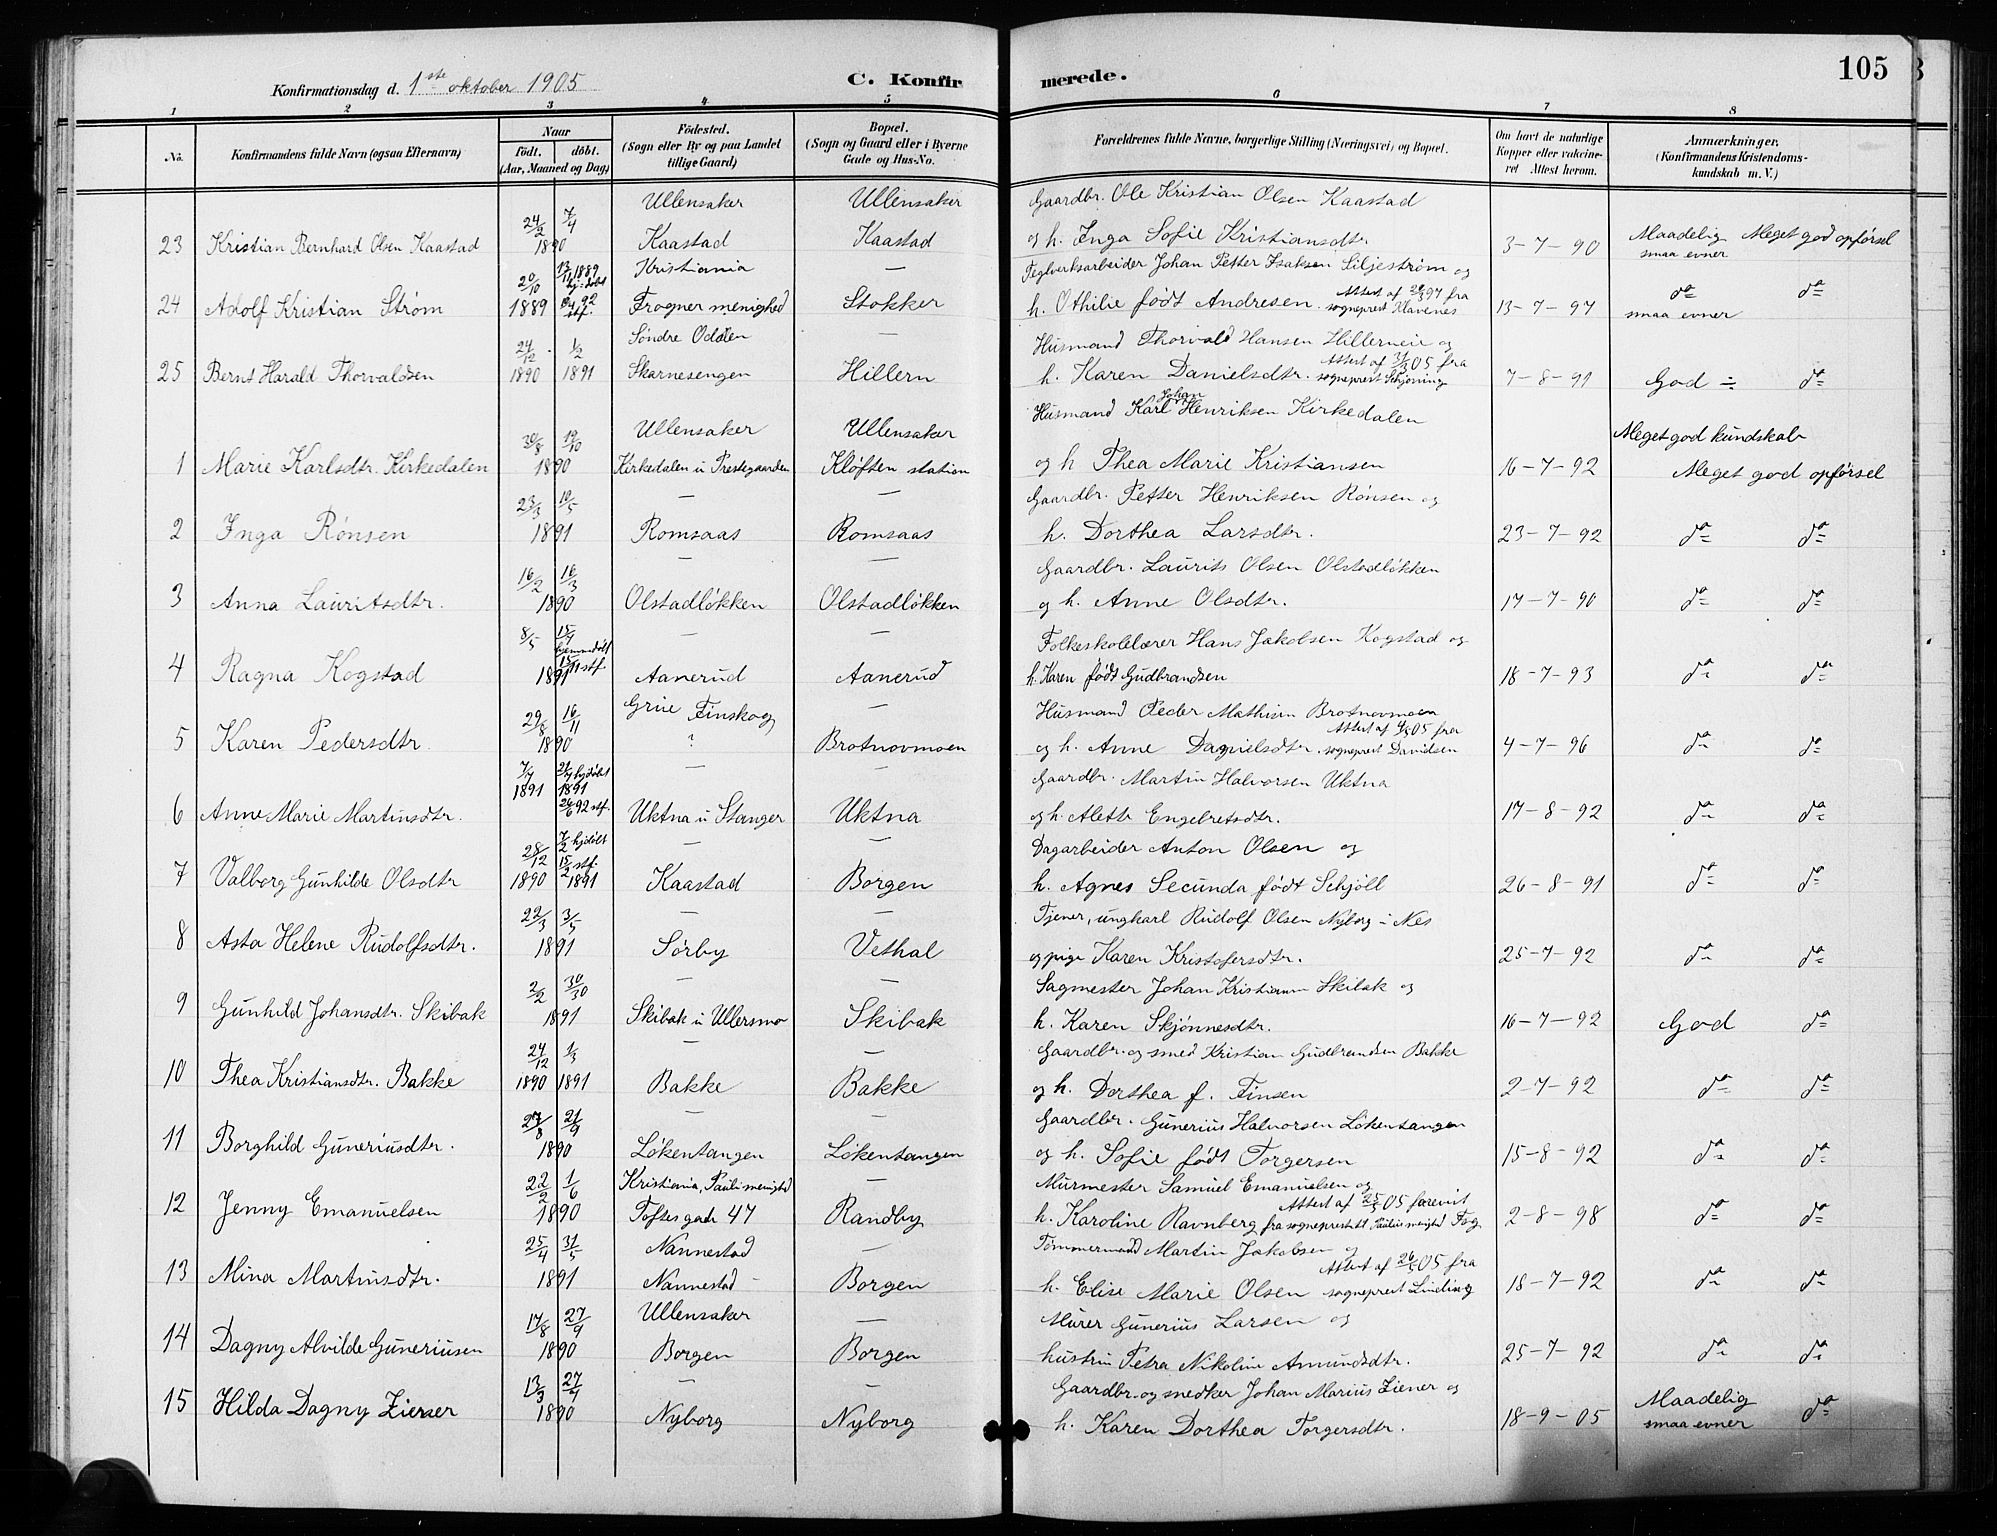 105
Konfirmationsdag d. 1ste oktober 1905
C. Konfirmerede.
1 2 3 4 5 6 7 8
No.
Konfirmandens fulde Navn (ogsaa Efternavn)
Naar
födt. döbt.
(Aar, Maaned og Dag)
Födested.
(Sogn eller By og paa Landet
tillige Gaard)
Bopæl.
(Sogn og Gaard eller i Byerne
Gade og Hus-No.
Forældrenes fulde Navne, borgerlige Stilling (Næringsvei) og Bopæl.
Om havt de naturlige
Kopper eller vakcine-
ret Attest herom.
Anmærkninger,
(Konfirmandens Kristendoms-
kundskab m. V.)
24/2 7/4 Ullensaker Ullensaker Gaardbr. Ole Kristian Olsen Kaastad
23 Kristian Bernhard Olsen Kaastad 1890 Kaastad Kaastad og h. Inga Sofie Kristiansdtr 3-7-90 Maadelig smaa evner Meget god opførsel
20/10 13/11 1889 hj:døbt Kristiania — Teglverksarbeider Johan Petter Isaksen Siljestrøm og
24 Adolf Kristian Strøm 1889 92 stf. Frogner menighed Stokker h. Othilie født Andresen. Attest af 97 fra sogneprest Klavenes 13-7-97 do smaa evner do
24/12 1/2 Søndre Odalen — Husmand Thorvald Hansen Hillerneie og
25 Bernt Harald Thorvaldsen 1890 1891 Skarnesengen Hillern h. Karen Danielsdtr. Attest af 31/3 05 fra sogneprest Schjøning 7-8-91 God ÷ do
30/8 19/10 Ullensaker Ullensaker Husmand Karl Johan Henriksen Kirkedalen Meget god kundskab
1 Marie Karlsdtr. Kirkedalen 1890 Kirkedalen u Prestegaarden Kløften station og h Thea Marie Kristiansen 16-7-92 Meget god opførsel
23/3 10/5 — — Gaardbr. Petter Henriksen Rønsen og
2 Inga Rønsen 1891 Romsaas Romsaas h. Dorthea Larsdtr. 23-7-92 do do
16/2 16/3 — — Gaardbr. Laurits Olsen Olstadløkken
3 Anna Lauritsdtr. 1890 Olstadløkken Olstadløkken og h. Anne Olsdtr. 17-7-90 do do
8/5 hjemmedøbt — — Folkeskolelærer Hans Jakobsen Kogstad og
4 Ragna Kogstad 1891 stf. Aanerud Aanerud h. Karen født Gudbrandsen 18-7-93 do do
29/8 16/11 Grue Finskog — Husmand Peder Mathisen Brotnovmoen
5 Karen Pedersdtr. 1890 ? Brotnovmoen og h. Anne Danielsdtr. Attest af 05 fra sogneprest Davidsen 4-7-96 do do
7/4 1891 21/4 hjdøbt 1891 — — Gaardbr. Martin Halvorsen Uktna
6 Anne Marie Martinsdtr. 26/6 92 stf. Uktna u Stanger Uktna og h. Alette Engebretsdtr. 17-8-92 do do
28/12 7/2 hjdøbt — — Dagarbeider Anton Olsen og
7 Valborg Gunhilde Olsdtr 1890 15/2 stf. 1891 Kaastad Borgen h. Agnes Secunda født Schjöll 26-8-91 do do
22/3 3/5 — — Tjener, ungkarl Rudolf Olsen Nyborg i Nes
8 Asta Helene Rudolfsdtr. 1891 Sørby Vethal og pige Karen Kristofersdtr. 25-7-92 do do
2/2 30/30 — — Sagmester Johan Kristiansen Skibak og
9 Gunhild Johansdtr. Skibak 1891 Skibak u Ullersmo Skibak h. Karen Skjønnesdtr. 16-7-92 God do
24/12 1/3 — — Gaardbr. og smed Kristian Gudbrandsen Bakke
10 Thea Kristiansdtr. Bakke 1890 1891 Bakke Bakke og h. Dorthea f. Finsen 2-7-92 do do
27/8 21/9 — — Gaardbr. Gunerius Halvorsen Løkentangen
11 Borghild Guneriusdtr. 1890 Løkentangen Løkentangen og h. Sofie født Torgersen 15-8-92 do do
22/2 1/6 Kristiania, Pauli menighed — Murmester Samuel Emanuelsen og
12 Jenny Emanuelsen 1890 Toftes gade 47 Randby h. Karoline Ravnberg Attest af 25/5 05 forevist fra sogneprest til Paulus menighed 2-8-98 do do
25/4 31/5 Nannestad — Tømmermand Martin Jakobsen og
13 Mina Martinsdtr. 1891 Nannestad - Borgen h. Elise Marie Olsen Attest af 26/5 05 fra sogneprest Linding 18-7-92 do do
17/8 27/9 Ullensaker — Murer Gunerius Larsen og
14 Dagny Alvilde Guneriusen 1890 Borgen Borgen hustru Petra Nikoline Amundsdtr. 25-7-92 do do
13/3 27/4 — — Gaardbr. og snedker Johan Marius Ziener og
15 Hilda Dagny Ziener 1890 Nyborg Nyborg h. Karen Dorthea Torgersdtr. 18-9-05 Maadelig smaa evner do